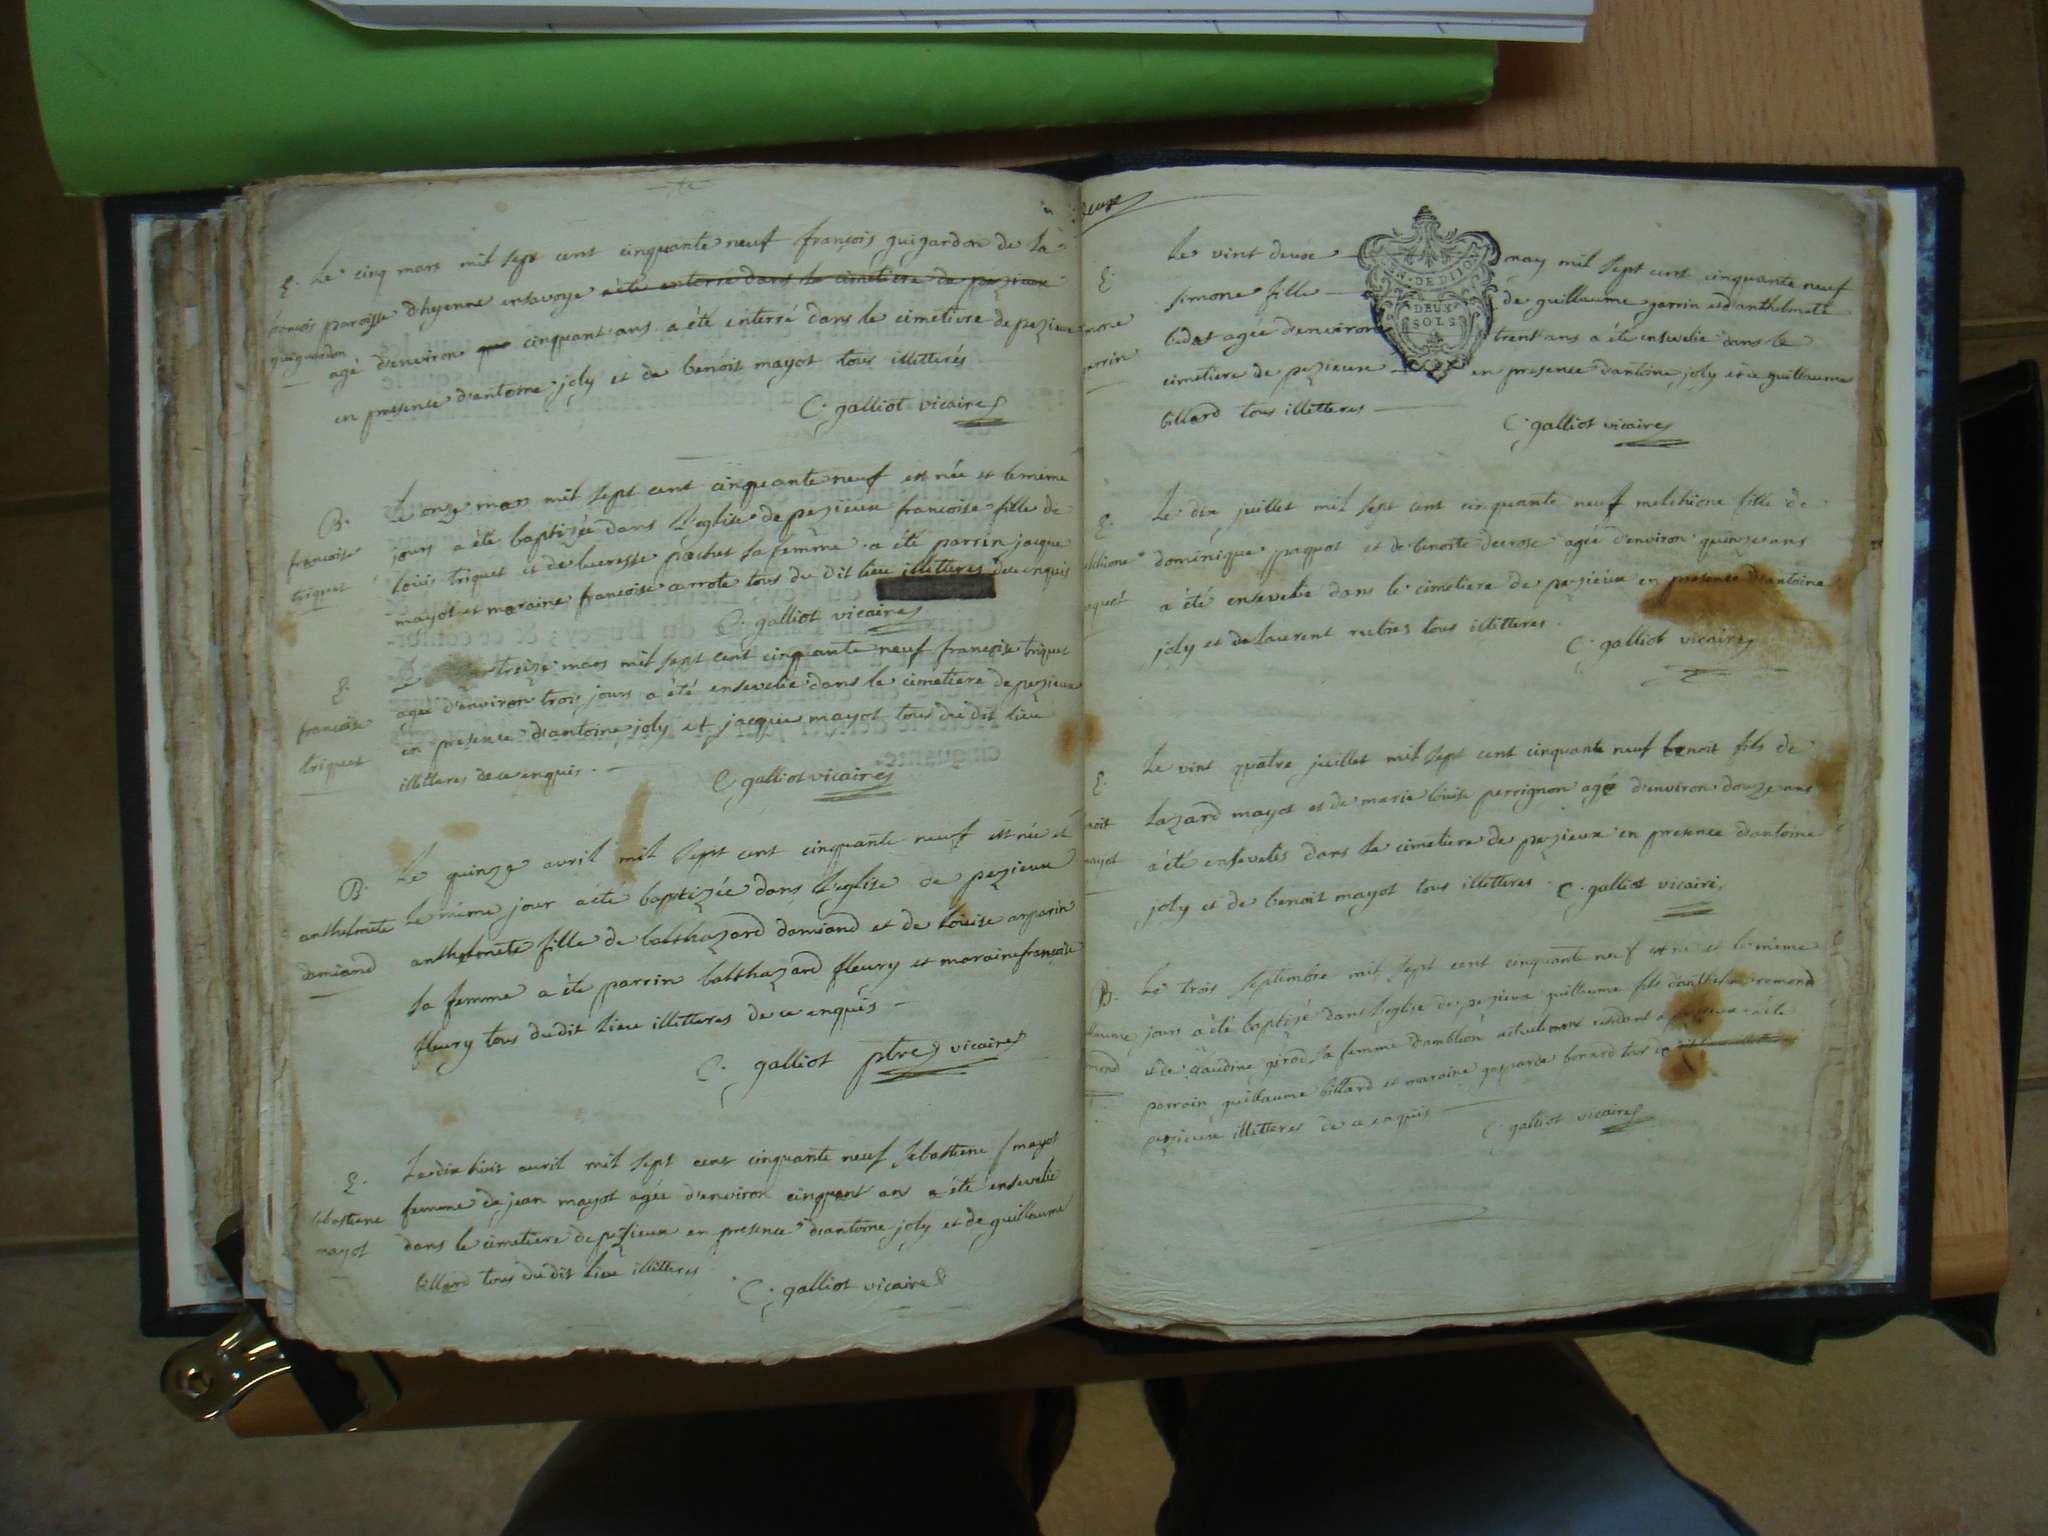 E. Le cinq mars mil sept cent cinquante neuf françois guigardon de la
françois paroisse dhyenne en savoye a été enterré dans le cimetiere de pezieux
guigardon agé d'environ cinquant ans a été enterré dans le cimetiere de pezieux
en presence d'antoine joly et de benoit mayot tous illitterés
C. galliot vicaire
B. Le onze mars mil sept cent cinquante neuf est née et le même
francoise jours a été baptizée dans l'eglise de pezieux francoise fille de
triquet louis triquet et de lucresse pochet sa femme a été parrin jacque
mayot et maraine francoise carrote tous du dit lieu illitteres de ce enquis
C. galliot vicaire
E. Le treize mars mil sept cent cinquante neuf françoise triquet
francoise agée d'environ trois jours a été ensevelie dans le cimetiere de pezieux
triquet en presence d'antoine joly et jacque mayot tous du dit lieu
illitteres de ce enquis.
C. galliot vicaire
B. Le quinze avril mil sept cent cinquante neuf est née et
anthelmete le même jour a été baptizée dans l'eglise de pezieux
damiand anthelmete fille de balthazard damiand et de louise
sa femme a été parrin balthazard fleury et maraine françoise
fleury tous du dit lieu illitteres de ce enquis
C. galliot ptre vicaire
E. Le dix huit avril mil sept cent cinquante neuf sebastiene mayot
sebastiene femme de jean mayot agée d'environ cinquant ans a été ensevelie
mayot dans le cimetiere de pezieux en presence d'antoine joly et de guillaume
billard tous du dit lieu illitteres
C. galliot vicaire
deux
E. Le vint deux may mil sept cent cinquante neuf
GEN. DE DIJON
DEUX SOLS
simone fille de guillaume perrin et d'anthelmete
bidat agée d'environ trent ans a été ensevelie dans le
cimetiere de pezieux en presence d'antoine joly et de guillaume
billard tous illitteres
C. galliot vicaire
E. Le dix juillet mil sept cent cinquante neuf melchione fille de
dominique paquot et de benoite decrose agée d'environ quinze ans
a été ensevelie dans le cimetiere de pezieux en presence d'antoine
joly et de laurent tous illitteres.
C. galliot vicaire
E. Le vint quatre juillet mil sept cent cinquante neuf benoit fils de
lazard mayot et de marie louise perrignon agé d'environ douze ans
mayot a été ensevelis dans le cimetiere de pezieux en presence d'antoine
joly et de benoit mayot tous illitteres C. galliot vicaire
B. Le trois septembre mil sept cent cinquante neuf est né et le même
jours a été baptizé dans l'eglise de pezieux guillaume fils d'anthelme remond
et de claudine girod sa femme d'ambleon actuelement residant a pezieux a été
parrain guillaume billard et maraine gasparde bonard tous de
pezieux illitteres de ce enquis
C. galliot vicaire